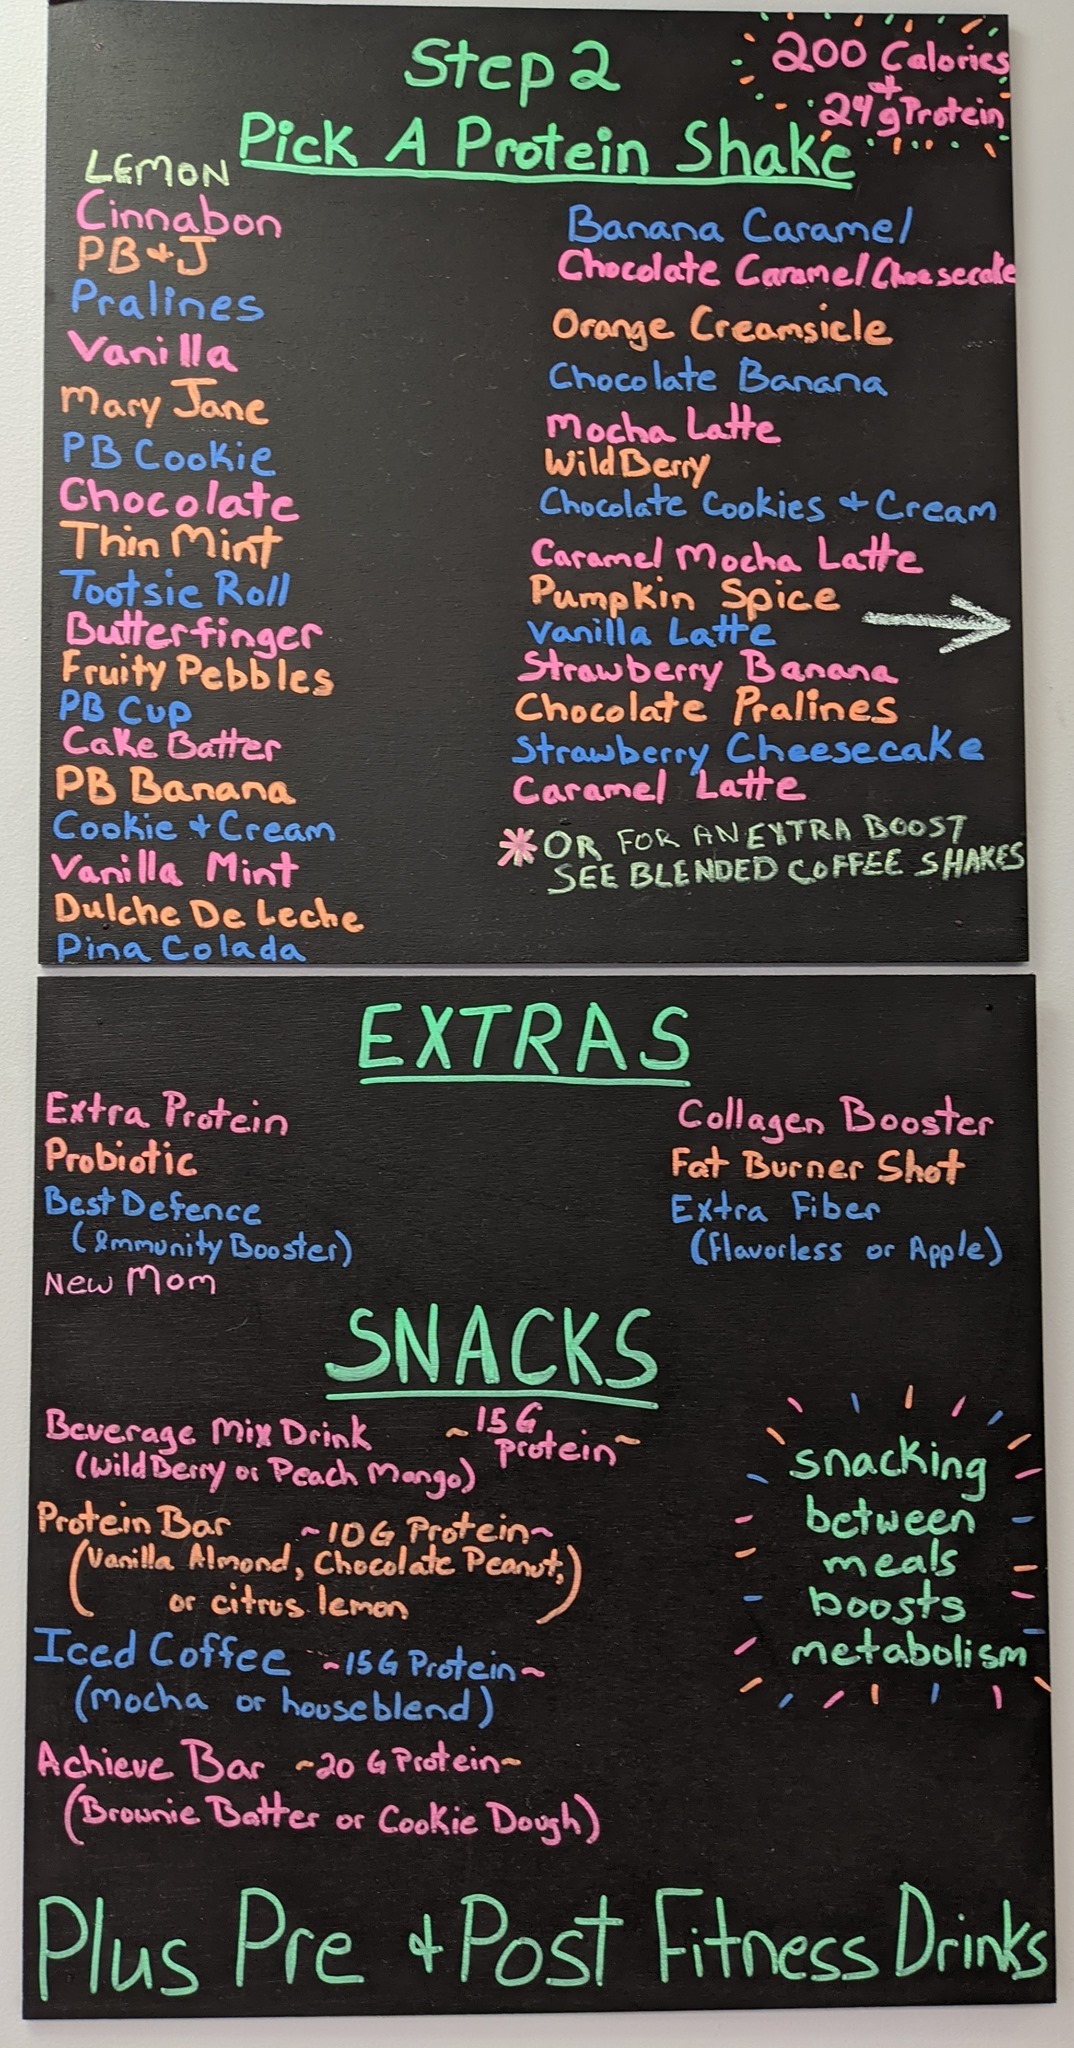 Step 2
Pick A Protein Shake
200 Calories
+
24g Protein
LEMON
Cinnabon
PB + J
Pralines
Vanilla
Mary Jane
PB Cookie
Chocolate
Thin Mint
Tootsie Roll
Butterfinger
Fruity Pebbles
PB Cup
Cake Batter
PB Banana
Cookie + Cream
Vanilla Mint
Dulche De Leche
Pina Colada
Banana Caramel
Chocolate Caramel Cheesecake
Orange Creamsicle
Chocolate Banana
Mocha Latte
Wild Berry
Chocolate Cookies + Cream
Caramel Mocha Latte
Pumpkin Spice
Vanilla Latte
Strawberry Banana
Chocolate Pralines
Strawberry Cheesecake
Caramel Latte
* OR FOR AN EXTRA BOOST
SEE BLENDED COFFEE SHAKES
EXTRAS
Extra Protein
Probiotic
Best Defence
(Immunity Booster)
New Mom
Collagen Booster
Fat Burner Shot
Extra Fiber
(Flavorless or Apple)
SNACKS
Beverage Mix Drink ~15G
Protein~
(Wild Berry or Peach Mango)
Protein Bar ~10G Protein~
(Vanilla Almond, Chocolate Peanut,
or citrus lemon)
Iced Coffee ~15G Protein~
(mocha or houseblend)
Achieve Bar ~20 G Protein~
(Brownie Batter or Cookie Dough)
snacking
between
meals
boosts
metabolism
Plus Pre + Post Fitness Drinks